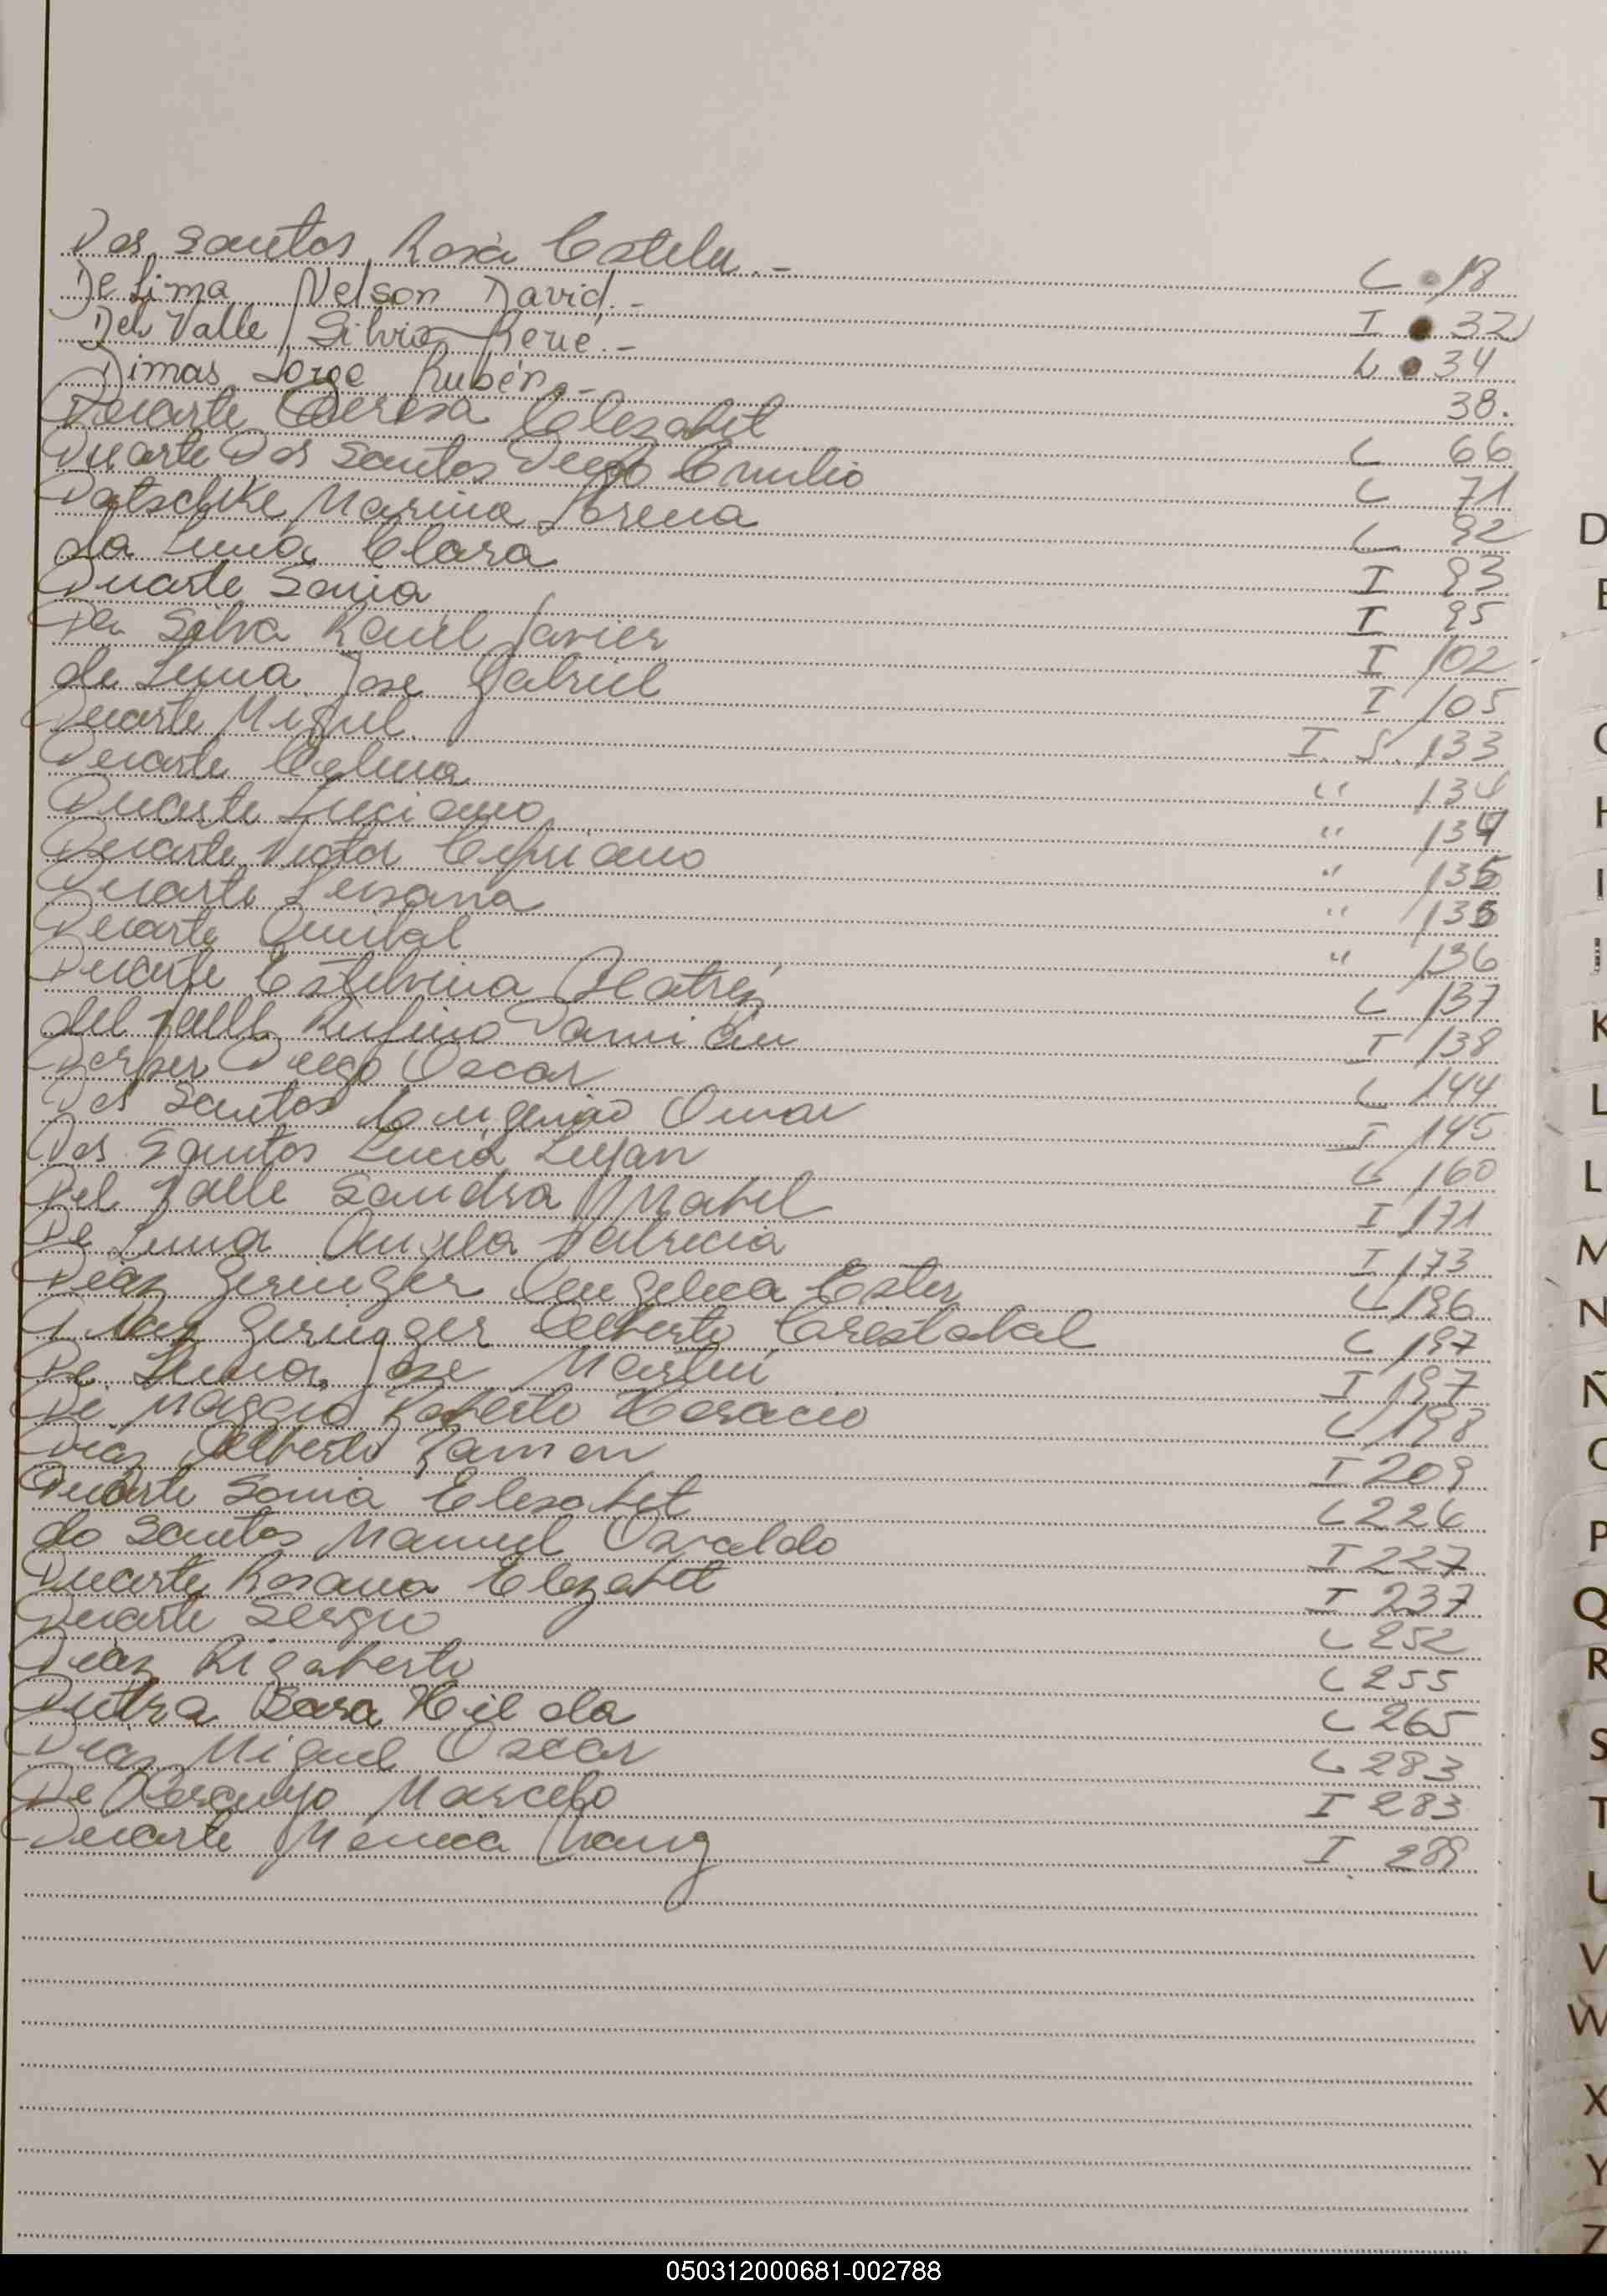 Dos Santos Rosa Estela.- L 18
De Lima Nelson David.- I 32
Del Valle Silvio René.- L 34
Dimas Jorge Rubén.- 38.
Duarte Teresa Elezabit L 66
Duarte Dos Santos Diego Emilio L 71
Datschke Marina Lorena L 92
da Luna Clara I 93
Duarte Sonia I 95
Da Silva Raúl Javier I 102
de Luna Jose Gabriel I 105
Duarte Miguel I. S. 133
Duarte Celina " 134
Duarte Luciano " 134
Duarte Victor Cipriano " 135
Duarte Susana " 135
Duarte Anibal " 136
Duarte Estelvina Beatriz L 137
del Valle Rufino Damián I 138
Diego Oscar L 144
Dos Santos Eugenio Omar I 145
Dos Santos Lucia Lujan L 160
Del Valle Sandra Mabel I 171
De Luna Patricia I 173
Diaz Geringer Angelica Ester L 196
Diaz Geringer Alberto Crestobal L 197
De Luna Jose Martin I 197
De Maggio Roberto Horacio L 198
Diaz Alberto Ramon I 209
Duarte Sonia Elesabet L 226
do Santos Manuel Osvaldo I 227
Duarte Rosana Elezabet I 237
Duarte Sergio L 252
Diaz Rigoberto L 255
Dutra Bora Hilda L 265
Diaz Miguel Oscar L 283
De Marcelo I 283
Duarte Mónica I. 289
D
E
G
H
I
J
K
L
L
M
N
Ñ
O
P
Q
R
S
T
U
V
W
X
Y
Z
050312000681-002788